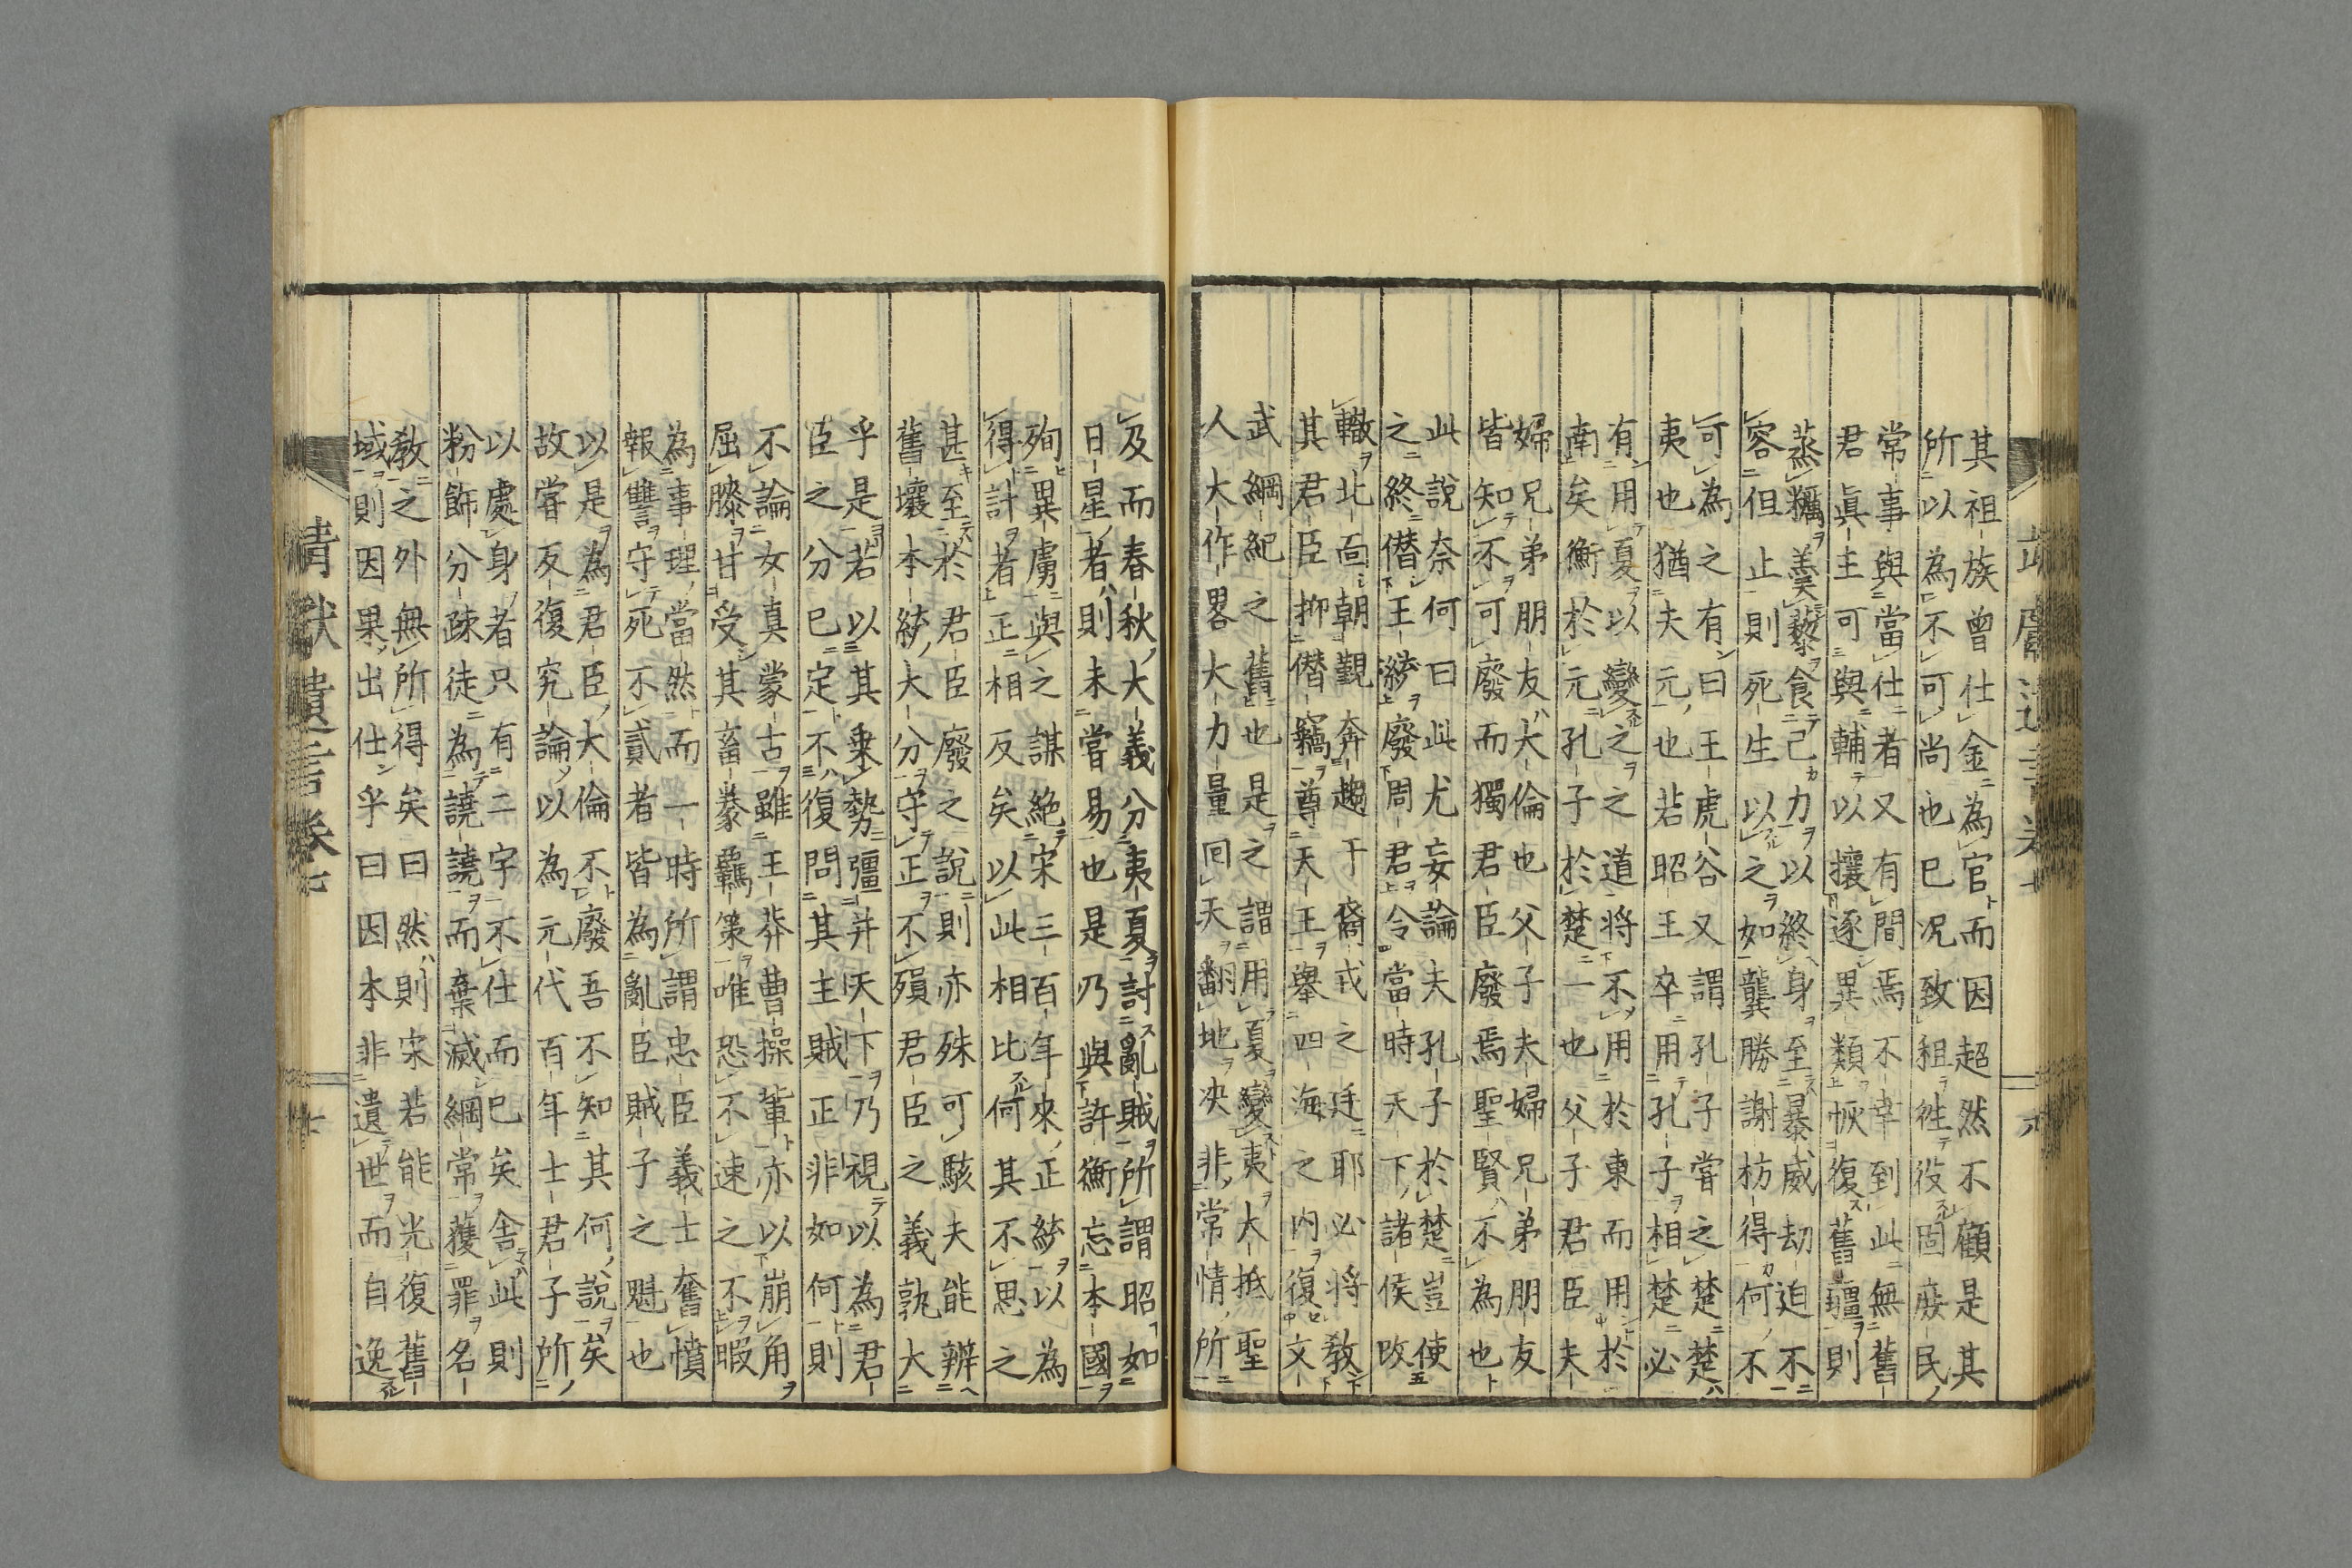 其祖族曾仕金為官而因超然不顧是其
所以為不可尚也已況致租徃役固廢民
常事與當仕者又有間焉不幸到此無舊
君眞主可與輔以攘逐異類恢復舊疆則
蒸糲羹藜食己力以終身至暴威劫迫不
容但止則死生以之如龔勝謝枋得何不
可為之有曰王虎谷又謂孔子嘗之楚楚
夷也猶夫元也若昭王卒用孔子相楚必
有用夏以變之之道将不用於東而用於
南矣衡於元孔子於楚一也父子君臣夫
婦兄弟朋友大倫也父子夫婦兄弟朋友
皆知不可廢而獨君臣廢焉聖賢不為也
此說奈何曰此尤妄論夫孔子於楚豈使
之終僭王綂廢周君令當時天下諸侯改
轍北面朝觀奔趨于裔戎之廷耶必将教
其君臣抑僭竊尊天王舉四海之内復文
武綱紀之舊也是之謂用夏變夷大抵聖
人大作畧大力量囘天翻地決非常情所
及而春秋大義分夷夏討亂賊所謂昭如
日星者則未嘗易也是乃與許衡忘本國
殉異虜與之謀絶宋三百年來正統以為
得計者正相反矣以此相比何其不思之
甚至於君臣廢之說則亦殊可駭夫能辨
舊壤本統大分守正不殞君臣之義孰大
乎是若以其乗勢彊并天下乃視以為君
臣之分已定不復問其主賊正非如何則
不論女真蒙古雖王莽曹操輩亦以崩角
屈膝甘受其畜豢羈策唯恐不速之不暇
為事理當然而一時所謂忠臣義士奮憤
報讐守死不貳者皆為亂臣賊子之魁也
以是為君臣大倫不廢吾不知其何說矣
故嘗反復究論以為元代百年士君子所
以處身者只有二字不仕而已矣舎此則
粉飾分疎徒為譊譊而棄滅綱常獲罪名
教之外無所得矣曰然則宋若能光復舊
域則因果出仕乎曰因本非遺世而自逸
靖獻遺言卷七